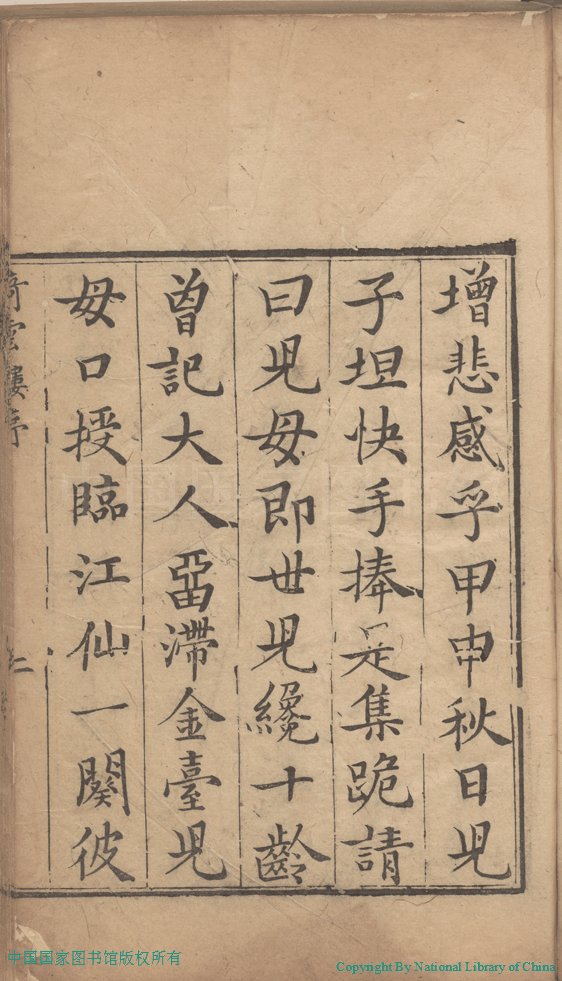 增悲感乎甲申秋日児
子坦快手捧是集跪請
曰児母即世児纔十齡
曾記大人畱滯金臺児
母口授臨江仙一闋彼
倚雲樓序 二
中国国家图书馆版权所有
Copyright By National Library of China